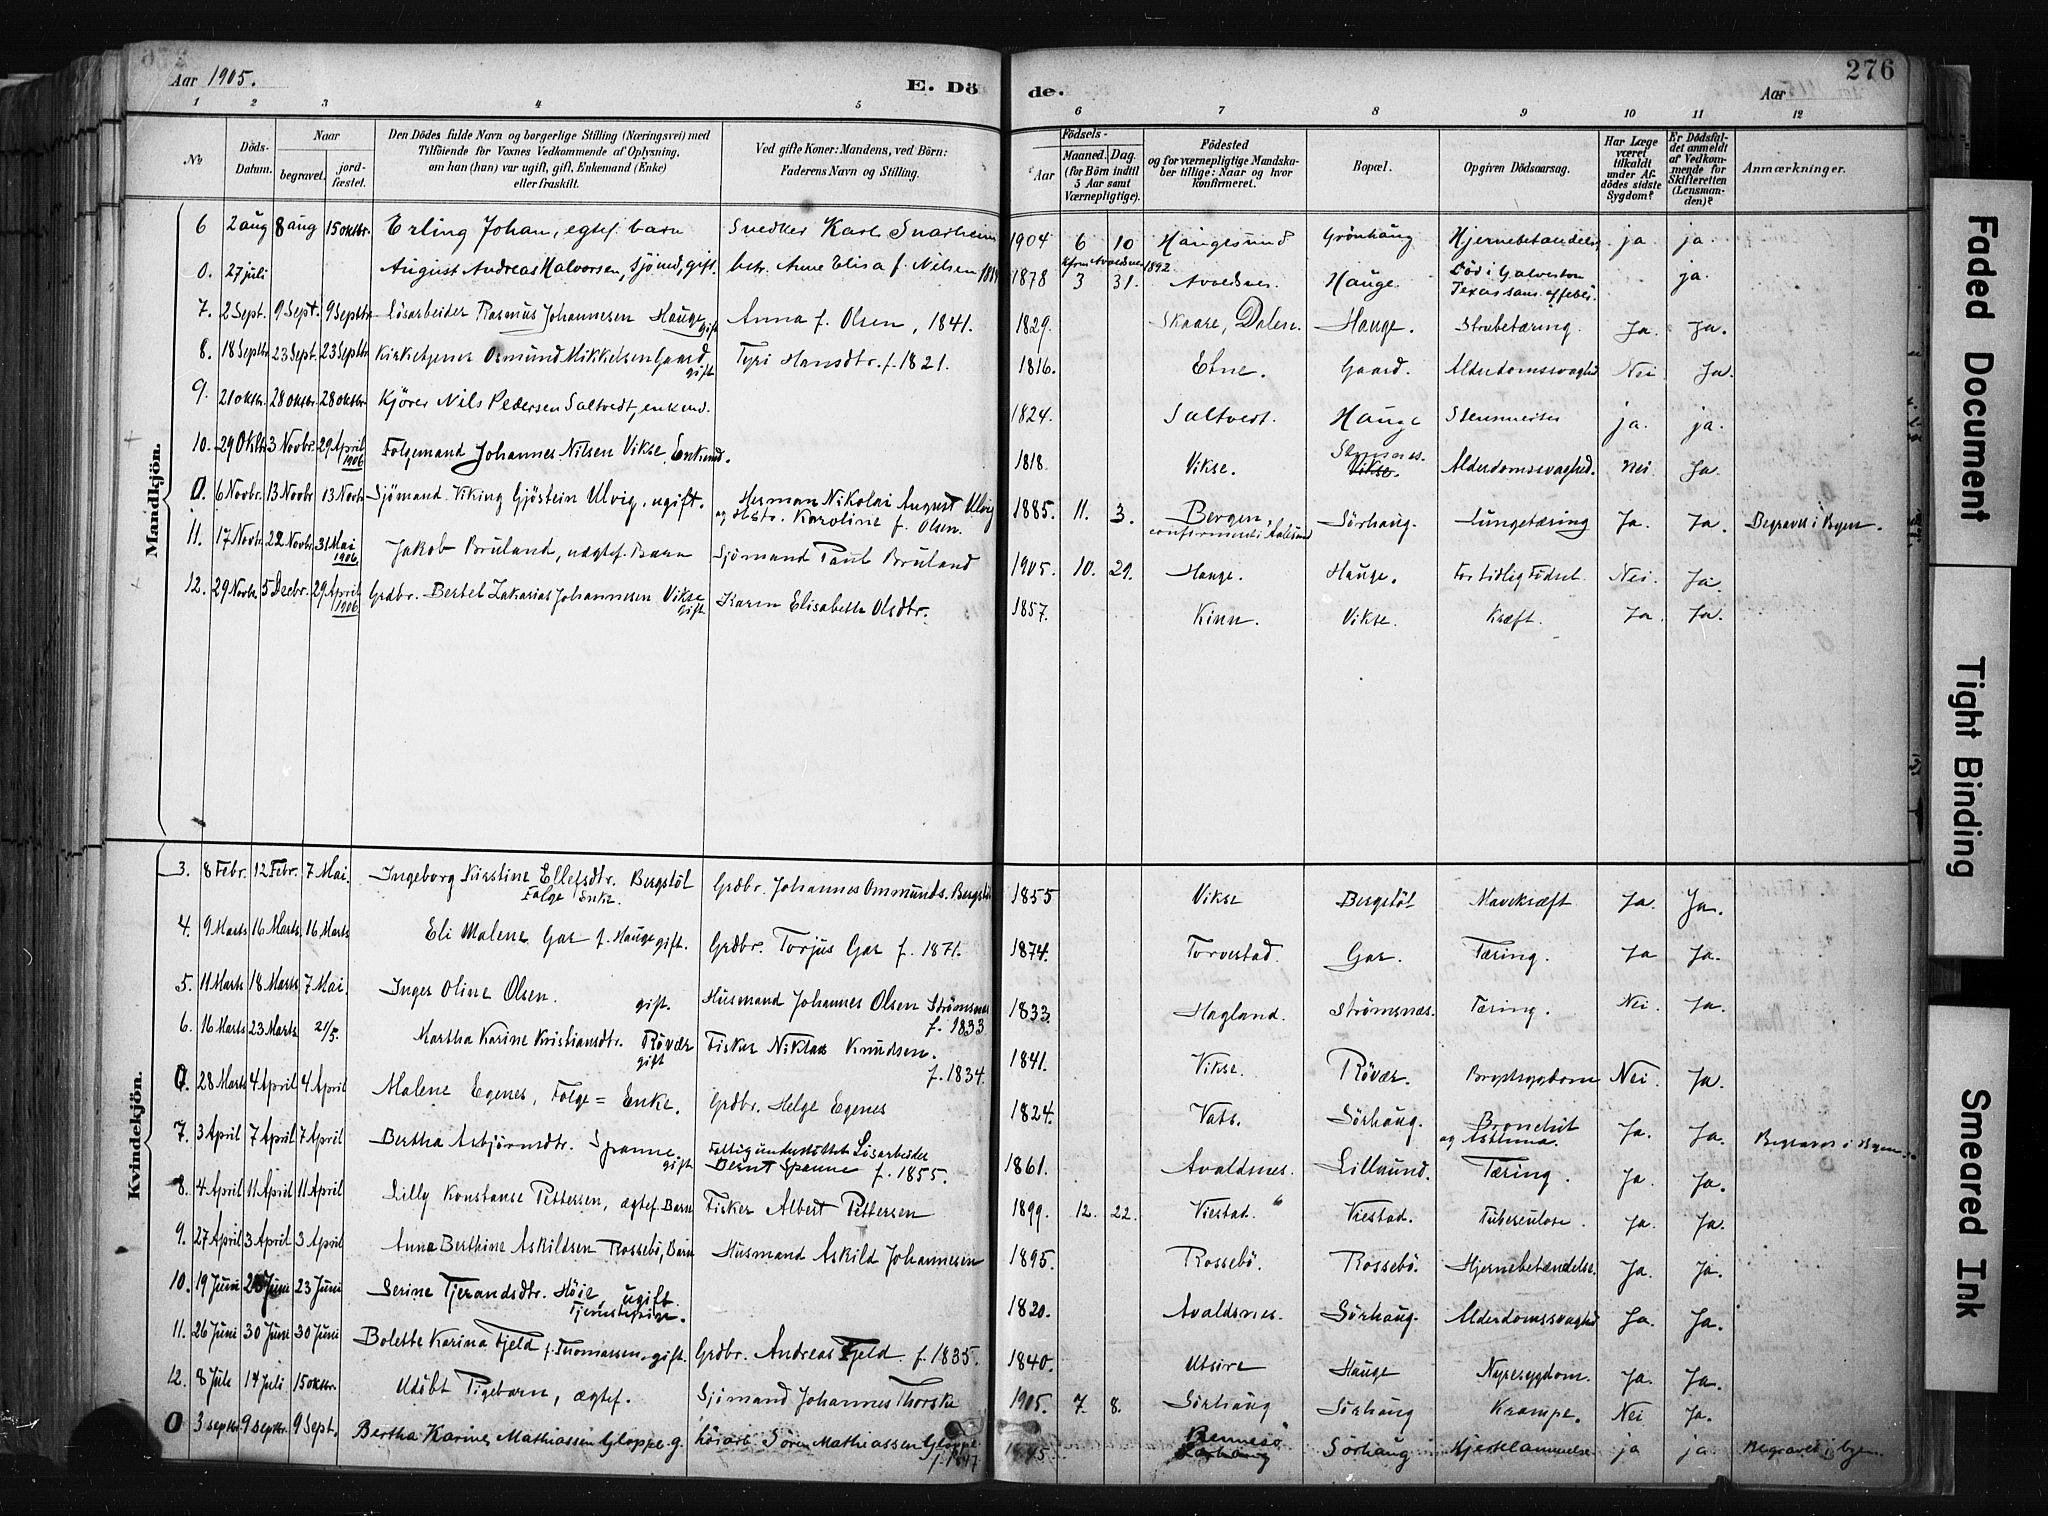 Aar 1905.
E. Döde.
Aar
276
1 2 3 4 5 6 7 8 9 10 11 12
No
Döds-Datum.
Naar
begravet.
jordfæstet.
Den Dödes fulde Navn og borgerlige Stilling (Næringsvei) med
Tilföiende for Voxnes Vedkommende af Oplysning,
om han (hun) var ugift, gift, Enkemand (Enke)
eller fraskilt.
Ved gifte Koner: Mandens, ved Börn:
Faderens Navn og Stilling.
Födsels-
Aar
Maaned. Dag.
(for Börn indtil
5 Aar samt
Værnepligtige).
Födested
og for værnepligtige Mandskaber tillige: Naar og hvor
konfirmeret.
Bopæl.
Opgiven Dödsaarsag.
Har Læge
været
tilkaldt
under Afdödes sidste
Sygdom?
Er Dödsfaldet anmeldt
af Vedkommende for
Skifteretten
(Lensmanden)?
Anmærkninger.
Mandkjön.
6 2 aug 8 aug 15 oktbr. Erling Johan, egtef. barn Snedker Karl Snarheim 1904 6 10 Haugesund Grönhaug Hjernebetændelse ja. ja.
0. 27 juli August Andreas Halvorsen, Sjömd, gift. betr. Anne Elisa f. Nilsen 1878 3 31. Avaldsnes. Kfrm Avaldsnes 1892 Hauge. Död i Galveston Texas ja.
7. 2 Sept. 9 Sept. 9 Septbr. Lösarbeider Rasmus Johannesen Hauge gift Anna f. Olsen, 1841. 1829. Skaare, Dalen. Hauge. Strubetæring. Ja. Ja.
8. 18 Septbr. 23 Sept. 23 Septbr Kirketjener Osmund Mikkelsen Gaard gift Tyri Hansdtr. f. 1821. 1816. Etne. Gaard. Alderdomssvaghed Nei. Ja.
9. 21 oktbr. 28 oktbr 28 oktbr Kjörer Nils Pedersen Saltvedt, enkemd. 1824. Saltvedt. Hauge Stensmerter ja. ja.
10. 29 Oktbr. 3 Novbr. 29 April 1906 Folgemand Johannes Nilsen Vikse, Enkemd. 1818. Vikse. Vikse. Alderdomssvaghed. Nei Ja.
0. 6 Novbr. 13 Novbr 13 Novbr Sjömand Viking Gjöstein Ulvig, ugift. Herman Nikolai August Ulvig
og Hstr. Karoline f. Olsen. 1885. 11. 3. Bergen, confirmeret i Aalesund Sörhaug. Lungetæring Ja. Ja. Begravet i Byen.
11. 17 Novbr. 22 Novbr. 31 Mai 1906. Jakob Bruland, uægtef. Barn Sjömand Paul Bruland 1905. 10. 29. Hauge. Hauge. For tidlig Födsel. Nei. Ja.
12. 29 Novbr. 5 Decbr. 29 April 1906 Grdbr. Bertel Zakarias Johannesen Vikse gift Karen Elisabeth Olsdtr. 1857. Kinn. Vikse. Kræft. Ja. Ja.
Kvindekjön.
3. 8 Febr. 12 Febr. 7 Mai. Ingeborg Kirstine Ellefsdtr. Bergstöl
Folge Enke. Grdbr. Johannes Ommunds. Bergstöl 1855 Vikse Bergstöl Mavekræft Ja. Ja.
4. 9 Marts 16 Marts 16 Marts Eli Malene Gar f. Hauge gift. Grdbr. Torjus Gar f. 1871. 1874. Torvestad. Gar. Tæring. Ja Ja.
5. 11 Marts 18 Marts 7 Mai. Inger Oline Olsen. gift. Husmand Johannes Olsen Strømsnes f. 1833 1833. Hagland. Strømsnæs. Tæring. Nei Ja.
6. 16 Marts 23 Marts 21/5. Martha Karine Kristiansdtr. Rövær gift Fisker Niklas Knudsen. f. 1834. 1841. Vikse. Rövær. Brystsygdom Nei. Ja.
0. 28 Marts 4 April 4 April Malene Egenes, Folge = Enke. Grdbr. Helge Egenes 1824. Vats. Sörhaug. Bronchit og Asthma. Ja. Ja. Begravet i Byen.
7. 3 April 7 April 7 April Bertha Asbjörnsdtr. Spanne. gift Fattigunderstöttet Lösarbeider
Bernt Spanne f. 1855. 1861. Avaldsnes. Lillesund. Tæring. Ja. Ja.
8. 4 April 11 April 11 April Lilly Konstanse Pettersen, ægtef. Barn Fisker Albert Pettersen 1899. 12. 22. Viestad. Viestad. Tuberculose. Ja. Ja.
9. 27 April 3 April 3 April Anna Berthine Askildsen Rossebö, Barn Husmand Askild Johannesen 1895. Rossebö. Rossebö. Hjernebetændelse. Ja. Ja.
10. 19 Juni 23 Juni 23 Juni Serine Tjerandsdtr. Höie, ugift. 
Tjenestepige. 1820. Avaldsnes. Sörhaug. Alderdomssvaghed Ja. Ja.
11. 26 Juni 30 Juni 30 Juni Bolette Karina Fjeld f. Thomassen, gift. Grdbr. Andreas Fjeld. f. 1835. 1840. Utsire Hauge Nyresygdom. Ja. Ja.
12. 8 Juli 14 Juli 15 oktbr. Udöbt Pigebarn, ægtef. Sjömand Johannes Thorske 1905. 7. 8. Sörhaug Sörhaug Krampe. Nei Ja.
0 3 septbr. 9 septbr. 9 Sept. Bertha Karine Mathiassen Gloppe g. Lösarb Sören Mathiassen Gloppe Rennesö Sörhaug Sörhaug Hjertelammelse ja ja Begravet i byen
Faded Document
Tight Binding
Smeared Ink